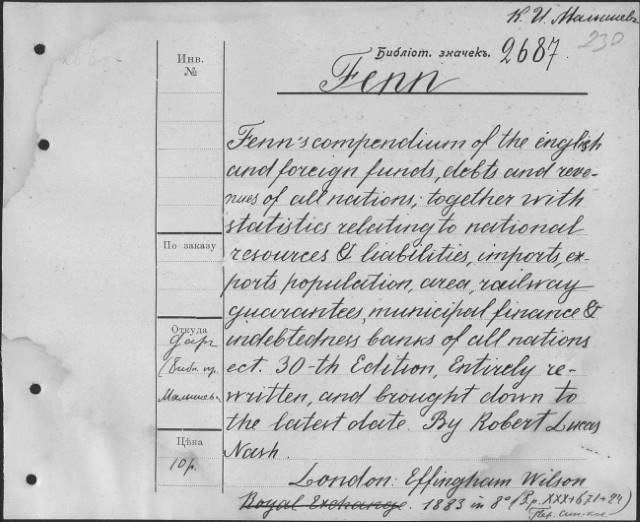 К. И. Малышевъ
230
Библіот. значекъ. 2687
Инв.
№
Fenn
Fenn's compendium of the english
and foreign funds, debts and reve-
nues of all nations; together with
statistics relating to national
resources & liabilities, imports, ex-
ports population, area, railway
guarantees, municipal finance &
indebtedness banks of all nations
ect. 30-th Edition, Entirely re-
written, and brought down to
the latest date. By Robert Lucas
Nash.
London: Effingham Wilson
Royal Exchange. 1883 in 8° (XXX+671+24)
По заказу
Откуда
даръ
Малышева
Цѣна
10 р.